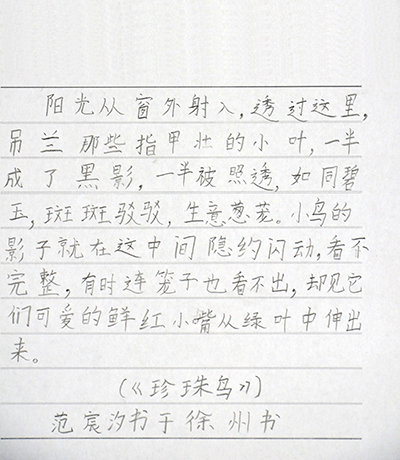 阳光从窗外射入,透过这里,
吊兰那些指甲壮的小叶,一半
成了黑影,一半被照透,如同碧
玉,斑斑驳驳,生意葱茏。小鸟的
影子就在这中间隐约闪动,看不
完整,有时连笼子也看不出,却见它
们可爱的鲜红小嘴从绿叶中伸出
来。
(《珍珠鸟》)
范宸汐书于徐州书